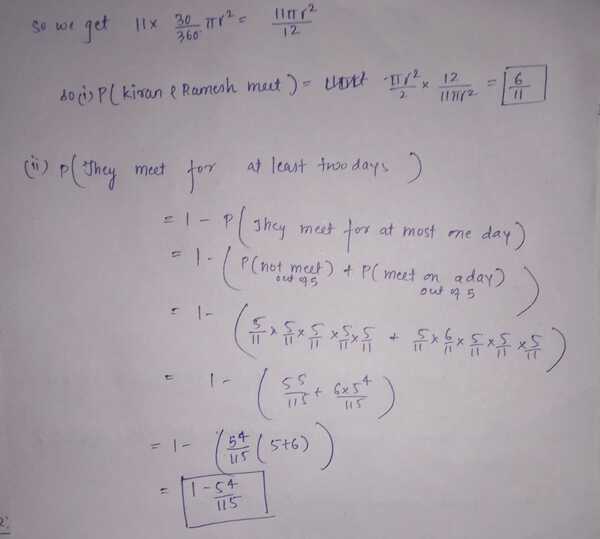 so we get 11x 30/360 πr² = 11πr²/12
so (i) P( kiran & Ramesh meet ) = πr²/2 x 12/11πr² = 6/11
(ii) P( They meet for at least two days )
= 1 - P( They meet for at most one day )
= 1 - ( P(not meet) out of 5 + P(meet on a day) out of 5 )
= 1 - ( 5/11 x 5/11 x 5/11 x 5/11 x 5/11 + 5/11 x 6/11 x 5/11 x 5/11 x 5/11 )
= 1 - ( 5⁵/11⁵ + 6x5⁴/11⁵ )
= 1 - ( 5⁴/11⁵ ( 5+6 ) )
= 1 - 5⁴/11⁵